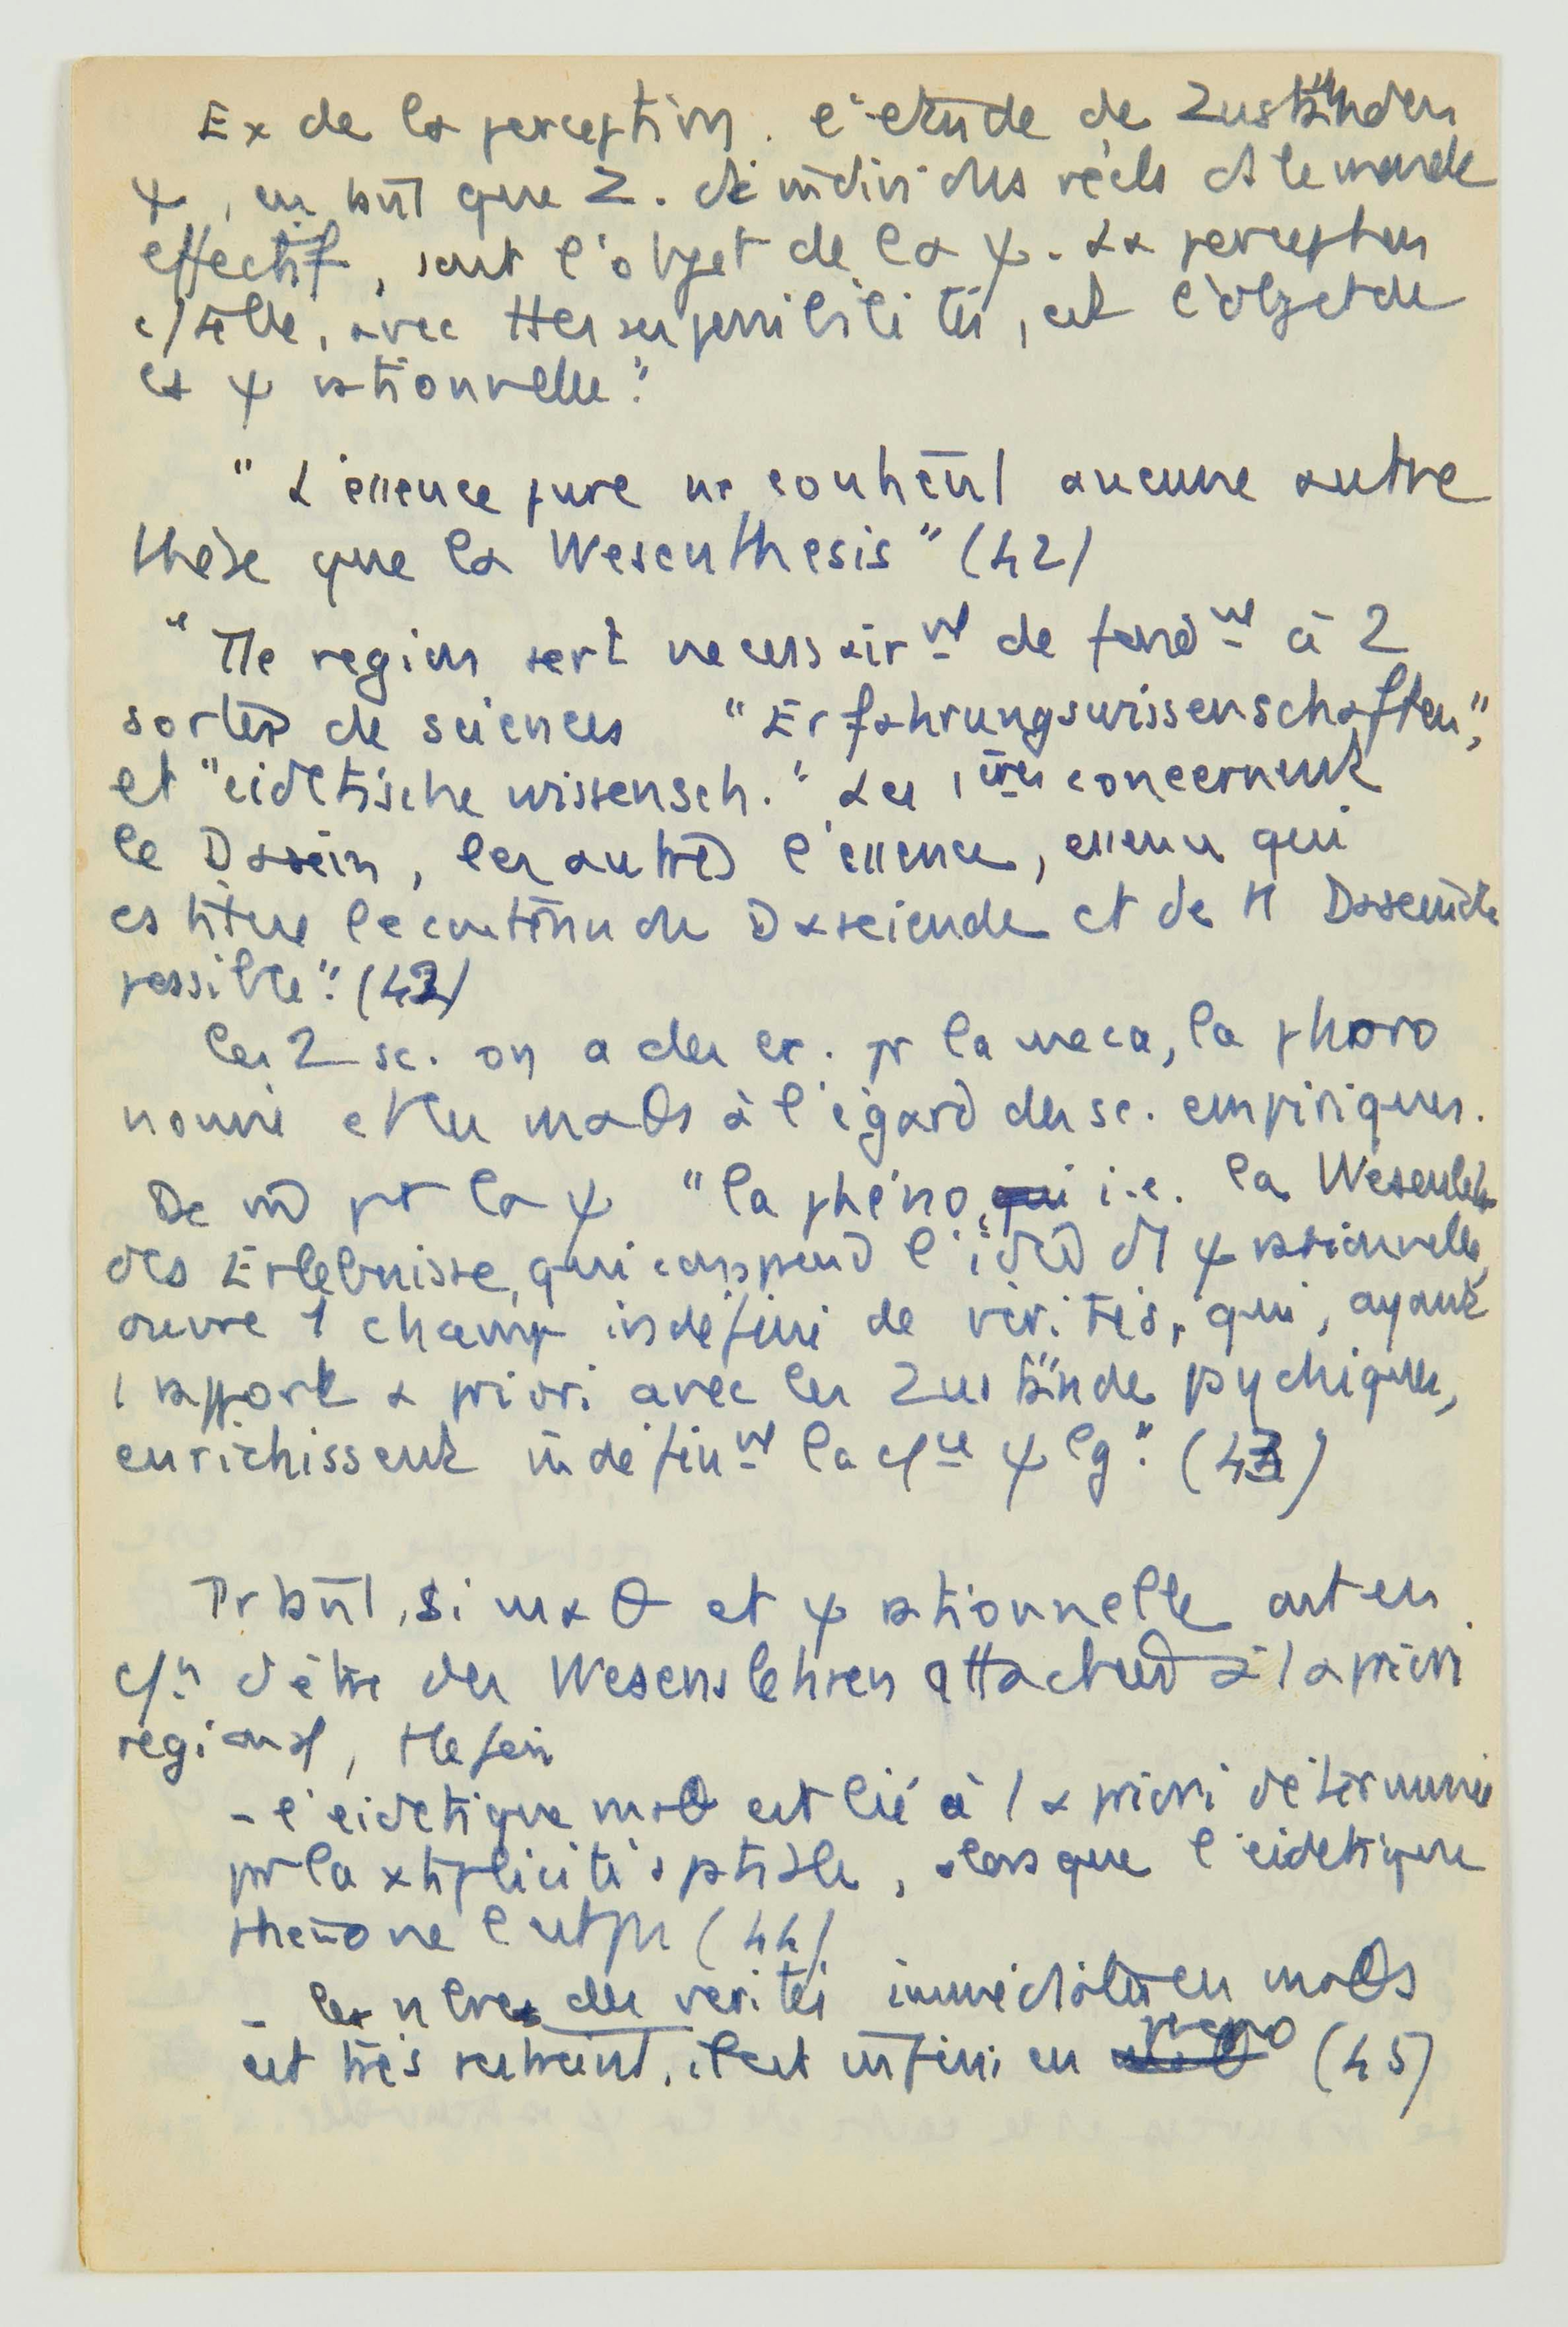 Ex de la perception. l'etude de Zuständen
ψ, en tant que Z. de individus réels ds le monde
effectif, sont l'objet de la ψ. La perception
elle, avec ttes ses possibilités, est l'objet de
la ψ rationnelle."
" L'essence pure ne contient aucune autre
thèse que la Wesenthesis" (42)
"Tte region sert necessairmt de fondmt à 2
sortes de sciences "Erfahrungswissenschaften",
et "eidetische wissensch." Les 1ères concernent
le Dasein, les autres l'essence, essence qui
le contenu du Daseiende et de tt Daseiende
possible". (43)
les 2 sc. on a des ex. pr la meca, la phoro
nomie et les maθs à l'égard des sc. empiriques.
De m pr la ψ "la phéno, i.e. la Wesenlehre
des Erlebnisse, qui comprend l'idée d1 ψ rationnelle,
ouvre 1 champ indéfini de vérités, qui, ayant
1 rapport a priori avec les Zustände psychiques,
enrichissent indéfinmt la ψ lg". (43)
Pr tant, si maθ et ψ rationnelle ont en
d'être des Wesenslehren attachées à 1 a priori
regional,
- l'eidetique maθ est lié à 1 a priori déterminé
pr la xtiplicité spatiale, alors que l'eidetique
pheno ne l'est pas (44)
- le nbre des verités immédiates en maθs
est très restreint, il est infini en pheno (45)